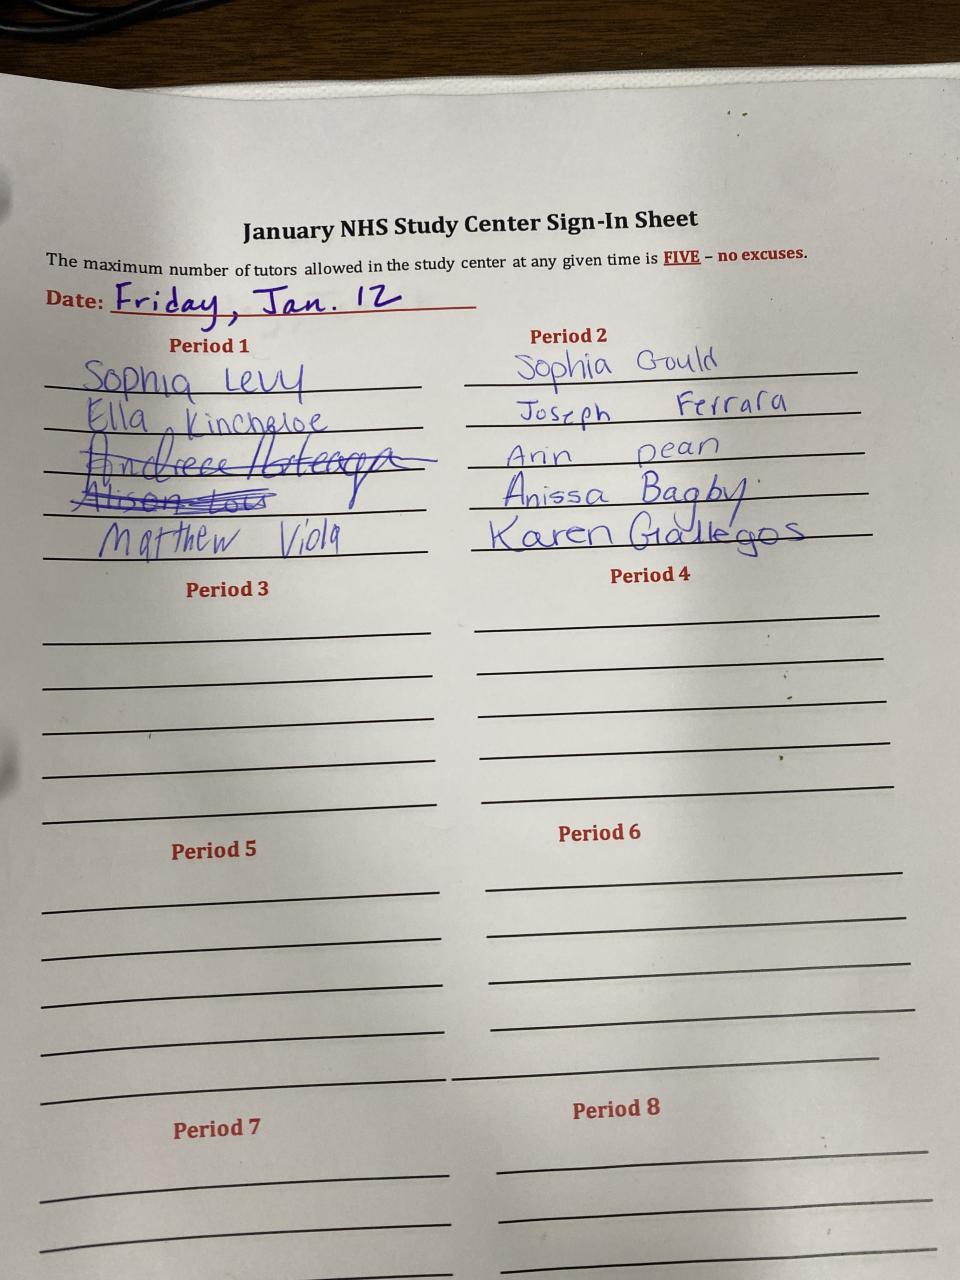 January NHS Study Center Sign-In Sheet
The maximum number of tutors allowed in the study center at any given time is FIVE – no excuses.
Date: Friday, Jan. 12
Period 1
Sophia Levy
Ella Kincheloe
Matthew Viola
Period 2
Sophia Gould
Joseph Ferrara
Arin Dean
Anissa Bagby
Karen Gallegos
Period 3
Period 4
Period 5
Period 6
Period 7
Period 8